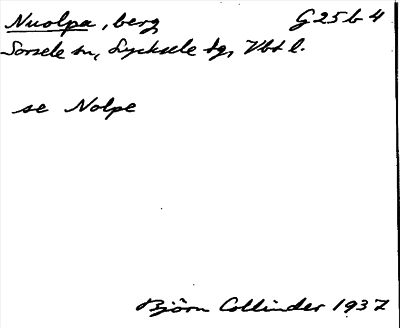 Nuolpa, berg G25b4
Sorsele sn, Lycksele tg, Vbt l.
se Nolpe
Björn Collinder 1937